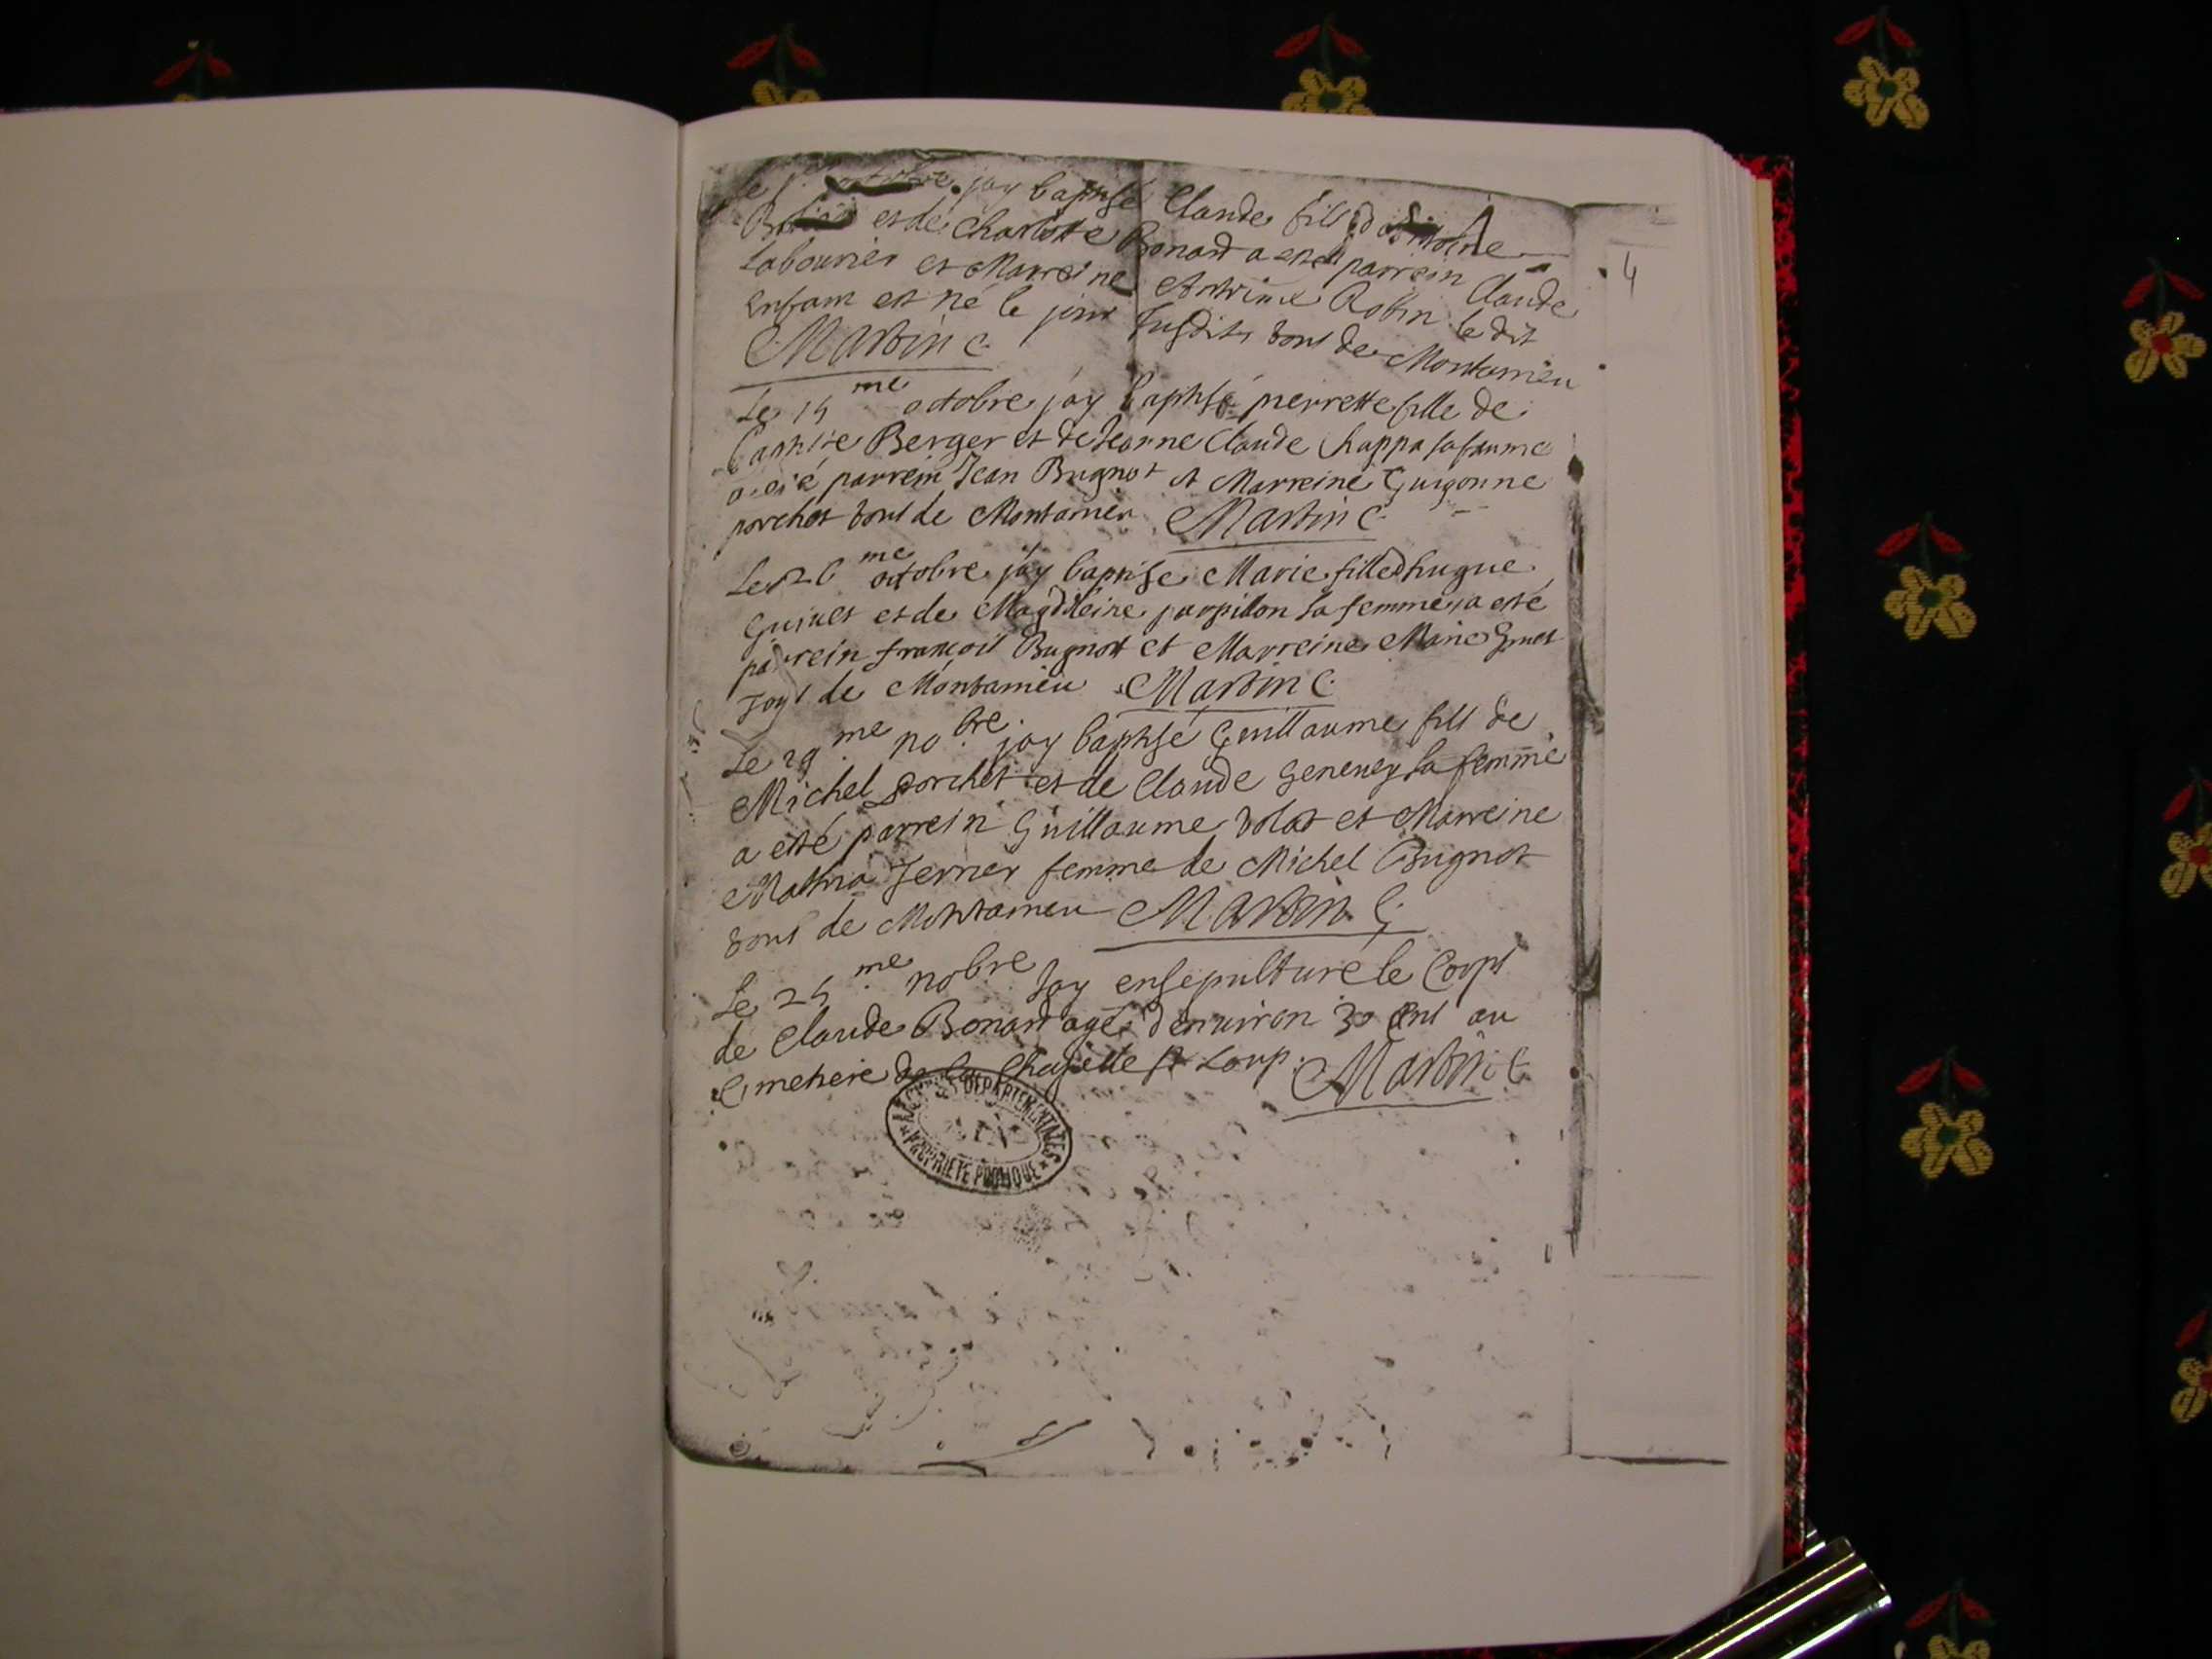 Le 1er octobre jay baptisé Claude fils d'Antoine
et de Charlotte Bonard a esté parrein Claude
Labourier et Marreine Antoinne Robin le dit
enfant est né le jour susdit tous de Montameu
Martin C.
4
Le 15me octobre jay baptisé pierrette fille de
baptiste Berger et de Jeanne Claude Chappa sa famme
a esté parrein Jean Bugnot et Marreine Guigonne
porchet tous de Montameu Martin C.
Le 26me octobre jay baptise Marie fille d'hugue
et de Magdeleine parpillon sa femme a esté
parrein françois Bugnot et Marreine Marie
tous de Montameu Martin C.
Le 29me nobre jay baptisé Guillaume fils de
Michel porchet et de Claude Geneney sa femme
a esté parrein Guillaume Volat et Marreine
Mathia Terrier femme de Michel Bugnot
tous de Montameu Martin C.
Le 25me nobre Jay ensepulturé le Corps
de Claude Bonard agé d'environ 30 ans au
Cimetiere de la Chapelle st Loup. Martin C.
ARCHIVES DEPARTEMENTALES
AIN
PROPRIETE PUBLIQUE